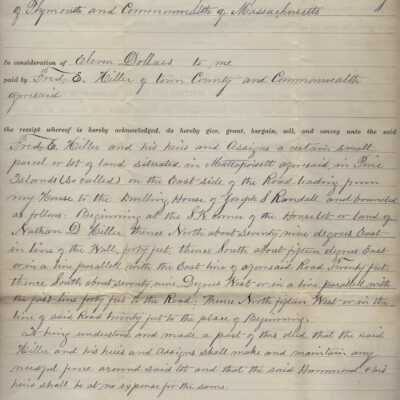 of Plymouth and Commonwealth of Massachusetts
In consideration of Eleven Dollars to me
paid by Fred, E. Hiller of town County and Commonwealth
aforesaid
the receipt whereof is hereby acknowledged, do hereby give, grant, bargain, sell, and convey unto the said
Fred, E. Hiller and his heirs and Assigns a certain small
parcel or lot of land situated in Mattapoisett aforesaid, in Pine
Islands (so called) on the East side of the Road leading from
my House to the Dwelling House of Joseph S Randall and bounded
as follows: Beginning at the S.E. corner of the Houselot or land of
Nathan D Hiller thence North about seventy nine degrees East
in line of the Wall, forty feet, thence South about fifteen degrees East
or in a line parallell with the East line of aforesaid Road Twenty feet
thence South about seventy nine Degrees West or in a line parallell with
the first line forty feet to the Road: Thence North fifteen West or in the
line of said Road twenty feet to the place of Beginning.
It being understood and made a part of this deed that the said
Hiller and his heirs and Assigns shall make and maintain any
needful fence around said lot and that the said Hammond & his
heirs shall be at no expense for the same.